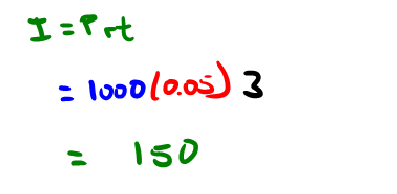 I = Prt
= 1000(0.05) 3
= 150